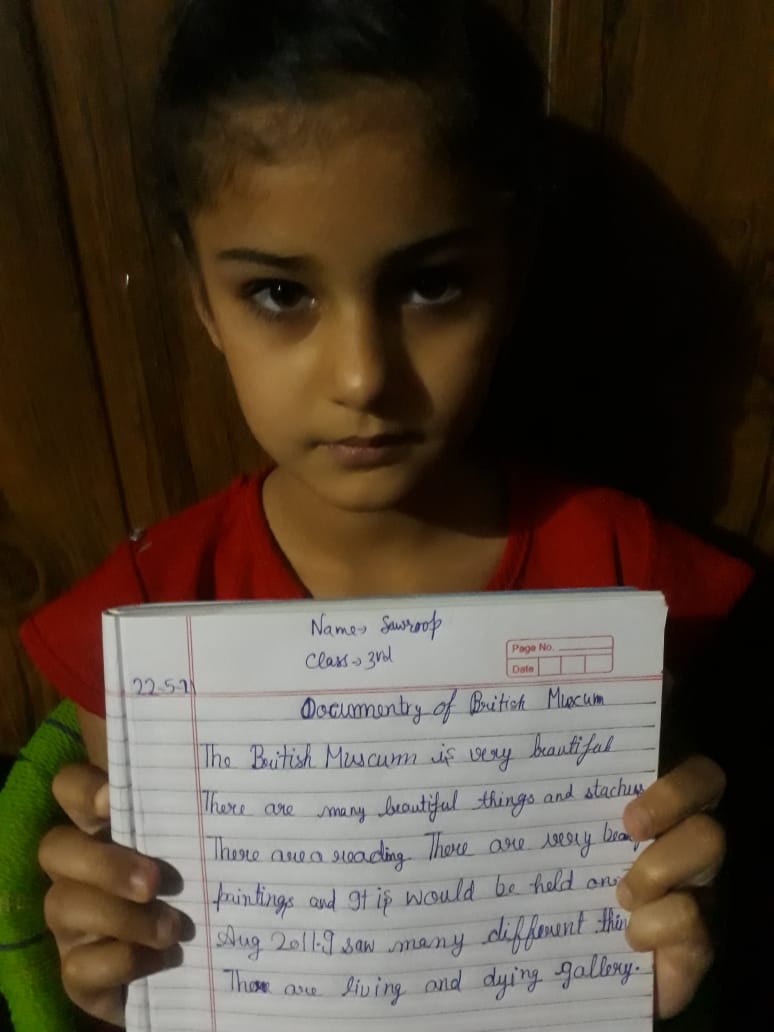 Name→ Sawroop
Class→ 3rd
Page No.
Date
22-5-21
Documentry of British Muscum
The British Muscum is very beautiful
There are many beautiful things and stachus
There are a reading. There are very beau
paintings and It is would be held on
Aug 2011. I saw many different thin
There are living and dying gallery.